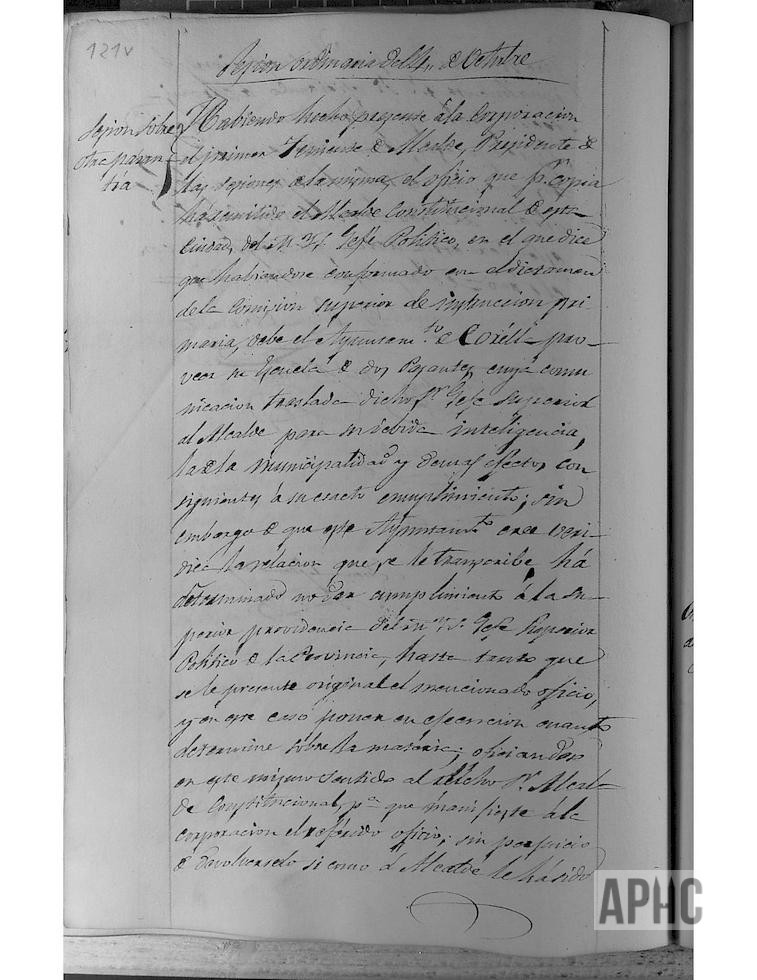 121v
Sesion ordinaria del 4 de Octubre
Sesion sobre
otra pasan
tía
Habiendo hecho presente á la Corporacion
el primer Teniente de Alcalde, Presidente de
las sesiones de la misma, el oficio que pr. copia
ha remitido el Alcalde Constitucional de esta
Ciudad, del Gefe Politico, en el que dice
que habiendose conformado con el dictamen
de la Comision superior de instruccion pri-
maria, debe el Ayuntamto. de Corella pro-
veer su Escuela de dos Pasantes, cuya comu-
nicacion traslada dicho Sr. Gefe Superior
al Alcalde para su debida inteligencia,
la de la municipalidad y demas efectos con
siguientes á su exacto cumplimiento; sin
embargo de que este Ayuntamto. cree veri-
dica la relacion que se le transcribe há
determinado no dar cumplimiento á la su-
perior providencia del Gefe Superior
Politico de la Provincia, hasta tanto que
se le presente original el mencionado oficio,
y en este caso poner en ejecucion cuanto
determine sobre la materia; oficiandose
en este mismo sentido al dicho Sr. Alcal-
de Constitucional, pa. que manifieste á la
corporacion el referido oficio; sin perjuicio
de devolverselo si como á Alcalde le há sido
APHC